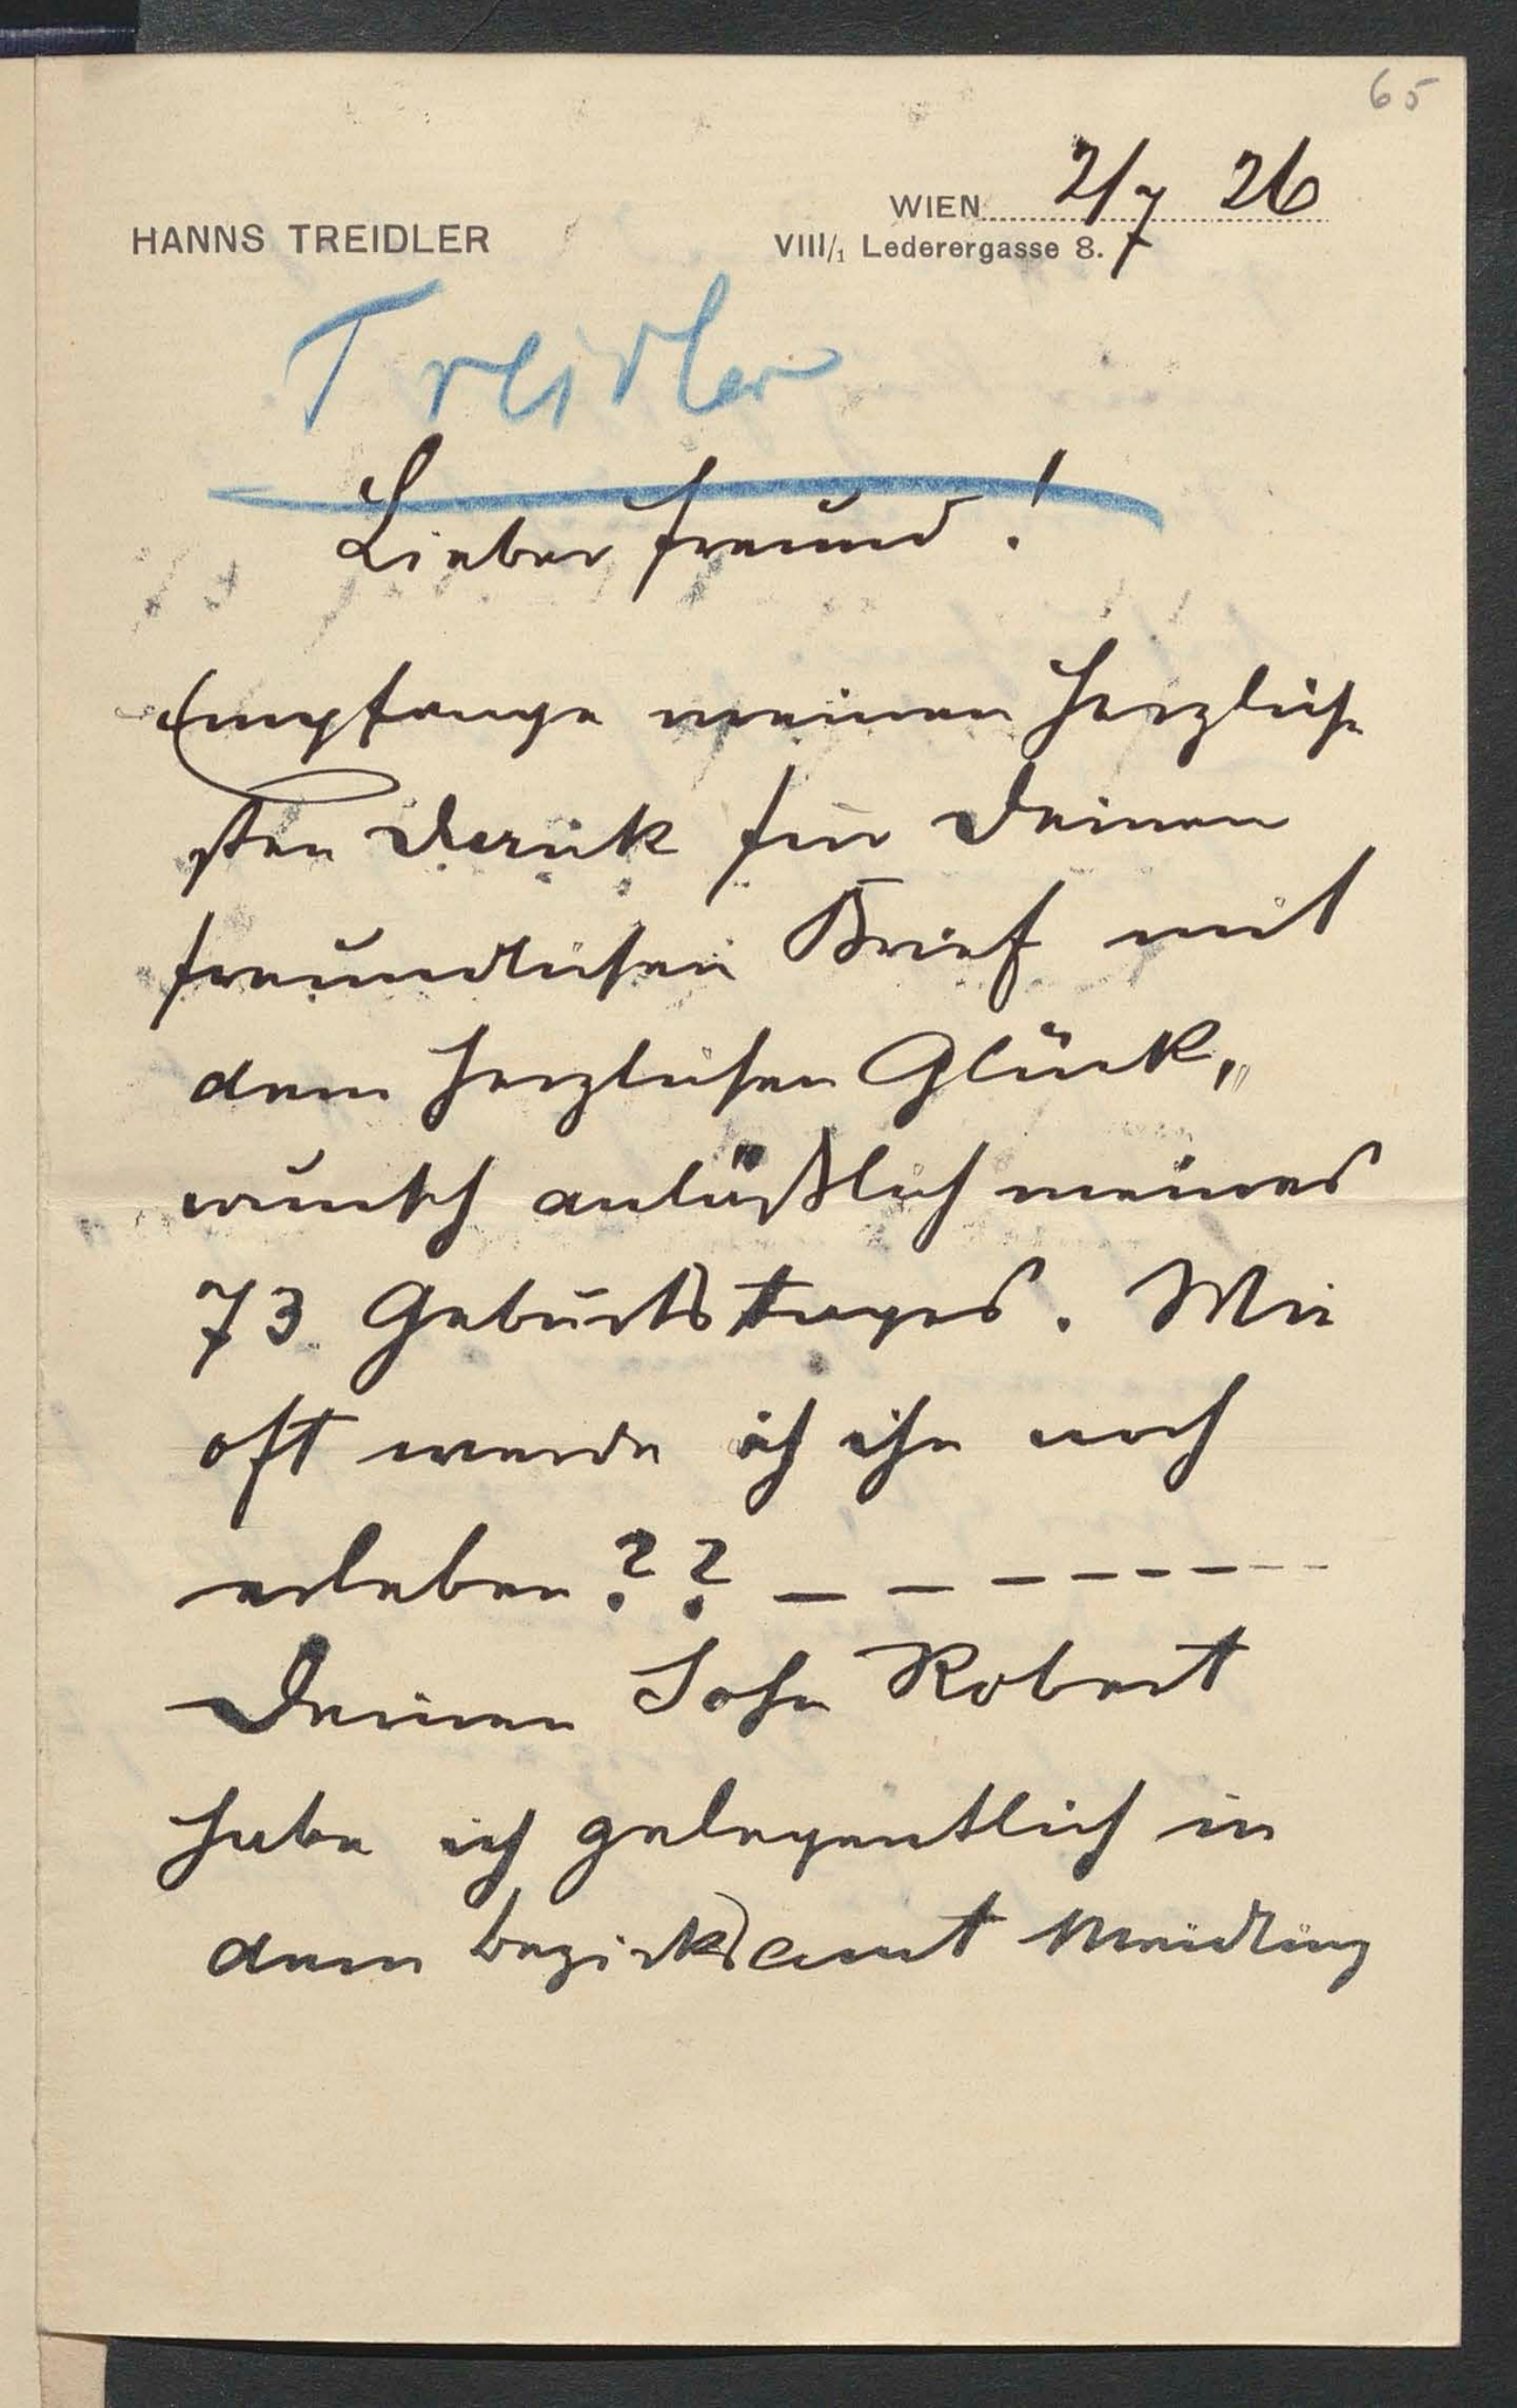 65
WIEN 2/7 26
HANNS TREIDLER
VIII/1 Lederergasse 8.
Treidler
Lieber Freund!
Empfange meinen herzlich
sten Dank für Deinen
freundlichen Brief mit
dem herzlichen Glück„
wunsch anläßlich meines
73 Geburtstages. Wie
oft werde ich ihn noch
erleben?? – – – – – – – –
Deinen Sohn Robert
habe ich gelegentlich in
dem Bezirksamt Meidling